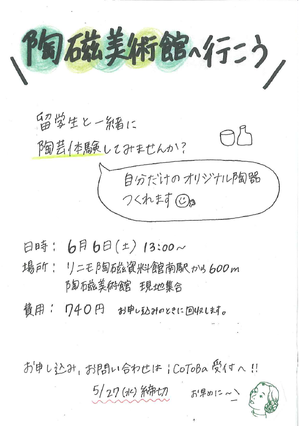 陶磁美術館へ行こう
留学生と一緒に
陶芸体験してみませんか?
自分だけのオリジナル陶器
つくれます
日時: 6月6日(土) 13:00～
場所: リニモ陶磁資料館南駅から600m
陶磁美術館 現地集合
費用: 740円 お申し込みのときに回収します。
お申し込み、お問い合わせは iCoToBa 受付へ!!
5/27(水) 締切
お早めに～